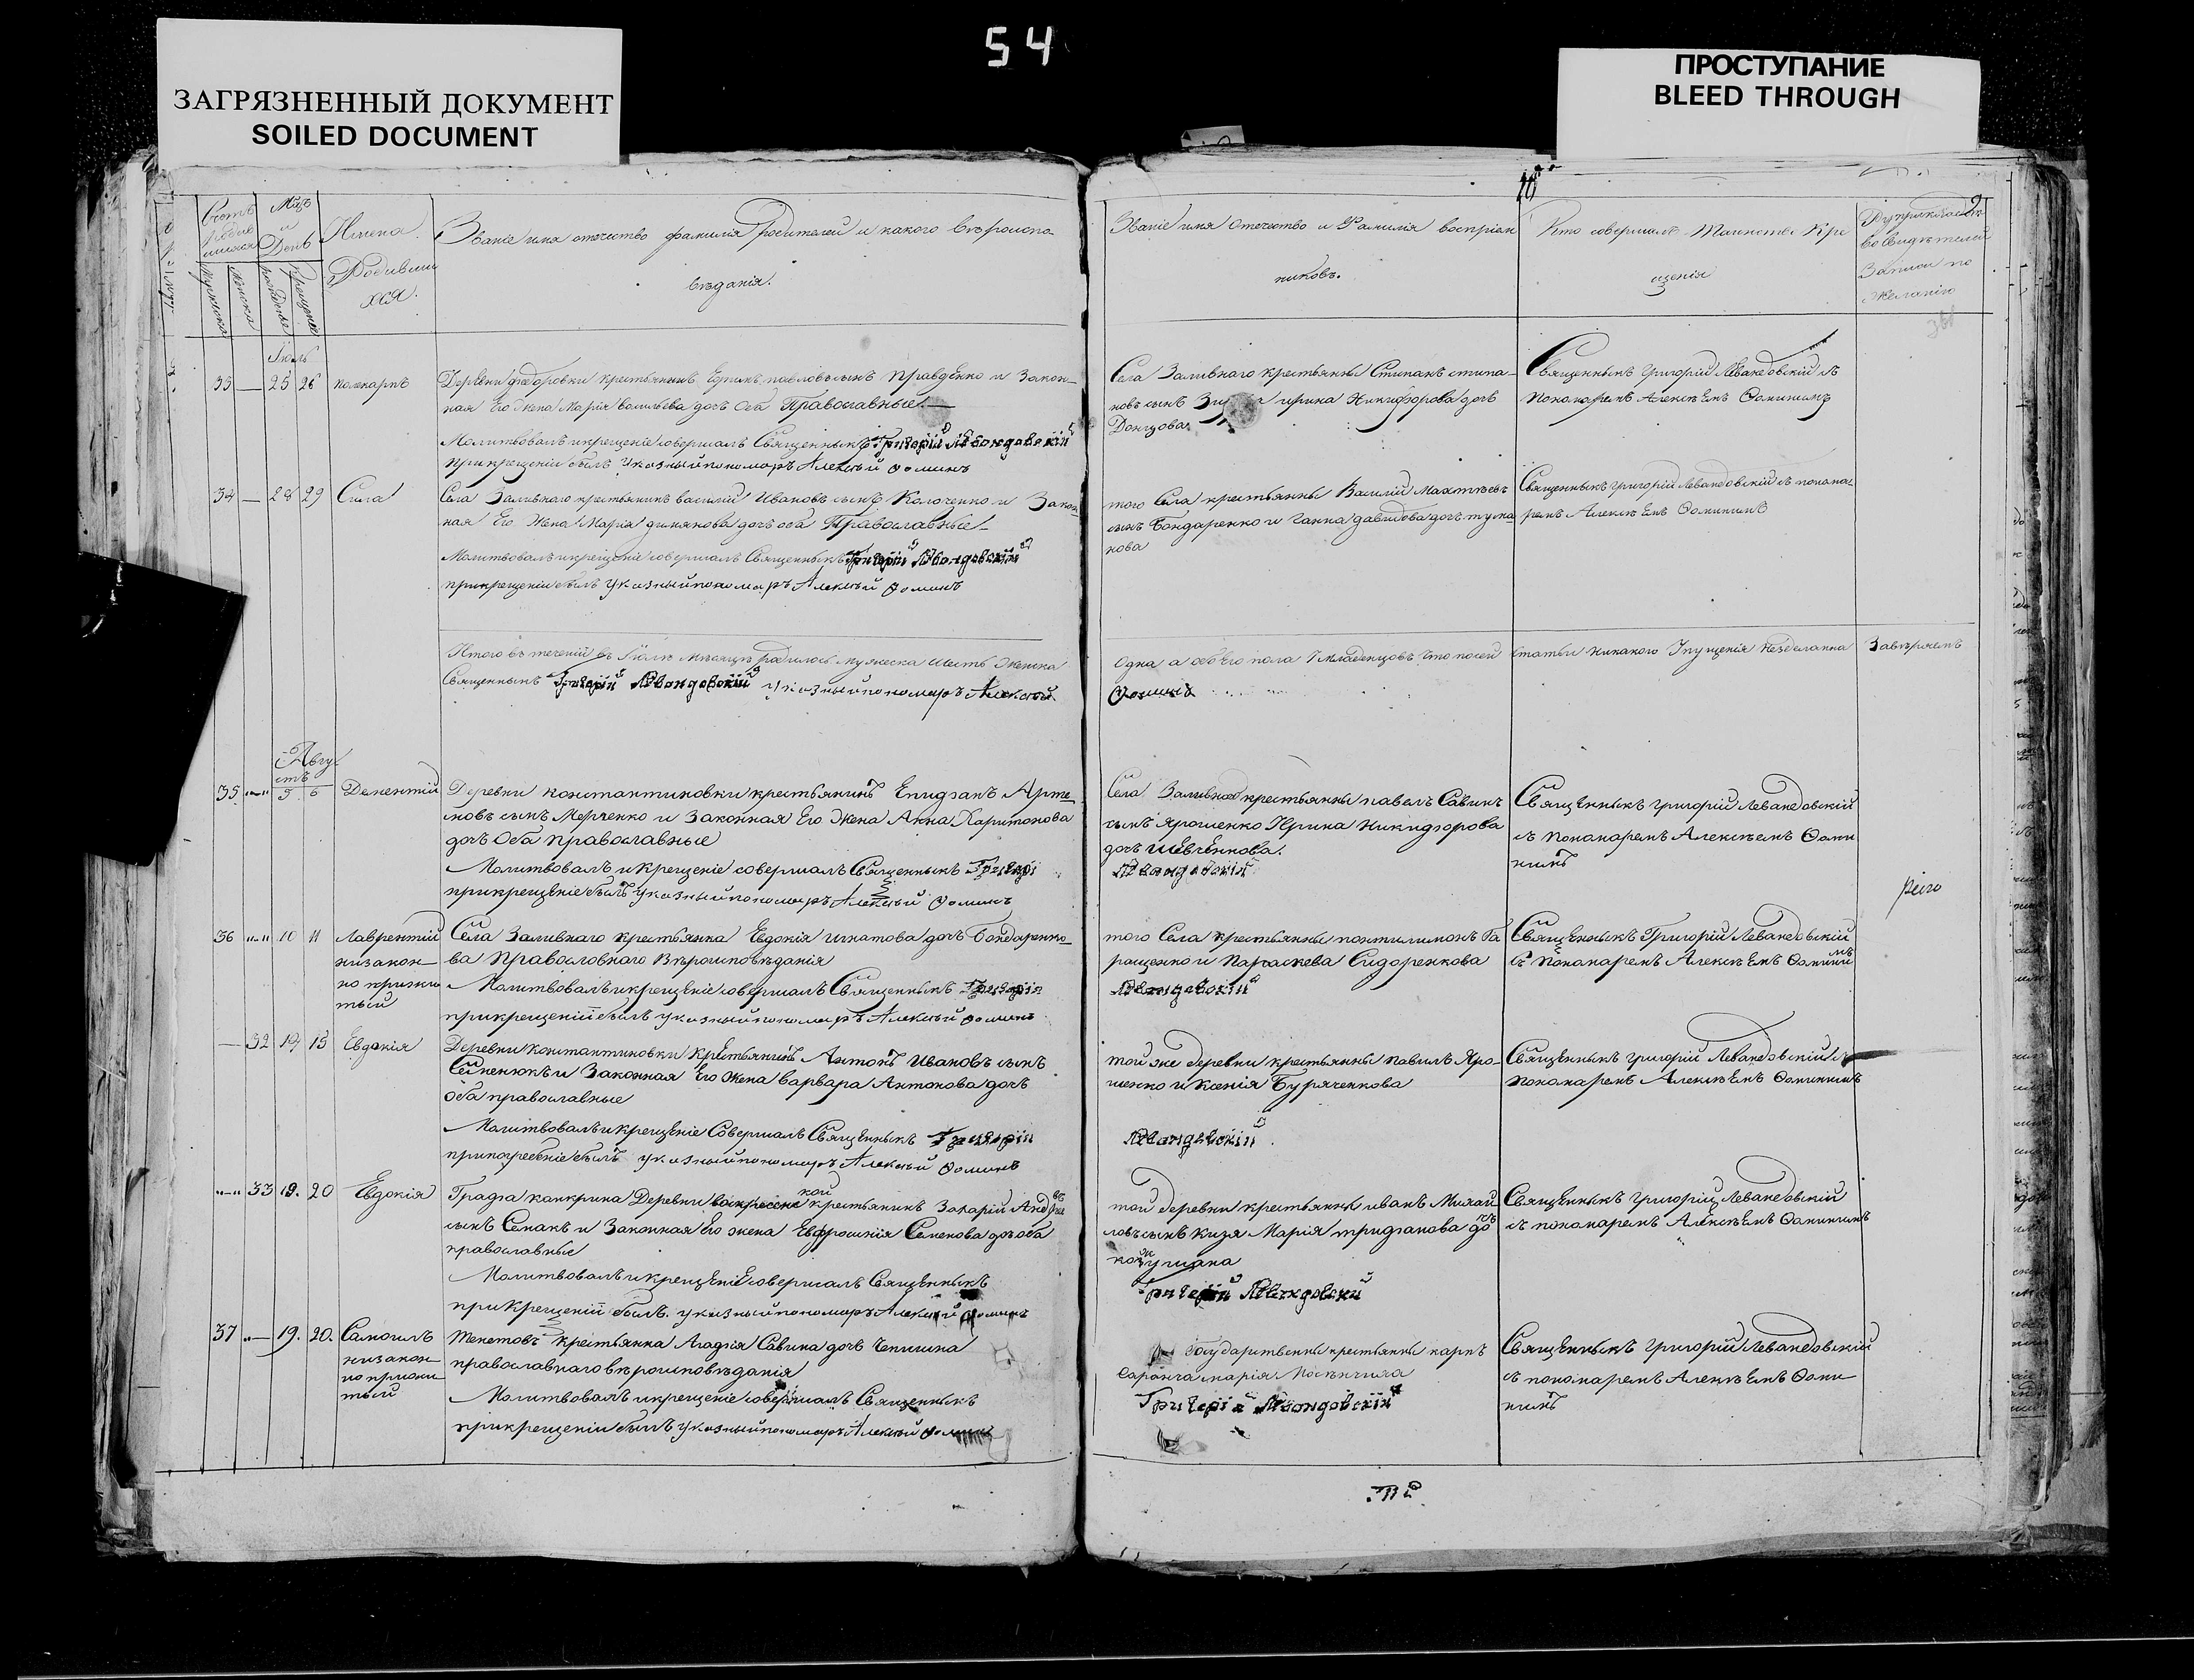 54
ЗАГРЯЗНЕННЫЙ ДОКУМЕНТ
SOILED DOCUMENT
ПРОСТУПАНИЕ
BLEED THROUGH
10
9
Счетъ родившихся
Мцъ и День
Имена Родившихся.
Званіе имя отечество фамилія родителей и какого вѣроиспо-
вѣданія.
Званіе имя Отечество и Фамилія воспріем
никовъ.
Кто совершалъ Таинство Кре
щенія
Рукоприкладство свидѣтелей
Записи по
желанію
Іюль
33 — 25 26 поликарпъ
Деревни федоровки крестьянинъ павловъ сынъ Правденко и Закон-
ная Его Жена Марія васильева дочъ Оба Православные
Молитвовалъ и крещеніе совершалъ Священникъ Григорій Левандовскій
при крещеніи былъ Указный пономаръ Алексѣй Фоминъ
Села Заливнаго крестьянны Стипанъ стипа-
новъ сынъ ирина Никифорова дочъ
Донцова
Священникъ Григорій Левандовскій съ
Пономаремъ Алексѣемъ Фоминымъ
34 — 28 29 Сила
Села Заливнаго крестьянинъ василій Ивановъ сынъ Колоченко и Закон
ная Его Жена Марія дочъ оба Православные
Молитвовалъ и крещеніе совершалъ Священникъ Григорій Левандовскій
при крещеніи былъ Указный пономаръ Алексѣй Фоминъ
того Села крестьянны Василій Матвѣевъ
сынъ Бондаренко и Ганна давидова дочъ тума
нова
Священникъ Григорій Левандовскій съ понома-
ремъ Алексѣемъ Фоминымъ
Итого въ теченіи въ Іюлѣ Месяцѣ родилось мужеска шесть Женска
одна а обоего пола 7 младенцовъ что по сей статьи никакого упущенія не зделанна Завѣряемъ
Священникъ Григорій Левандовскій Указный пономаръ Алексѣй
Фоминъ
Августъ
35 5 6 Дементій
Деревни константиновки крестьянинъ Епифанъ Арте
новъ сынъ Мерченко и Законная Его Жена Анна Харитонова
дочъ Оба православные
Молитвовалъ и крещеніе совершалъ Священникъ Григорі
при крещеніе былъ Указный пономаръ Алексѣй Фоминъ
Села Заливнаго крестьянны павелъ Савинъ
сынъ Ярошенко Ирина Никифорова
дочъ Шевченкова.
Левандовскій
Священникъ Григорій Левандовскій
съ Пономаремъ Алексѣемъ Фоми
нимъ
36 10 11 Лаврентій
низакон-
но прижи
тый
Села Заливнаго крестьянка Евдокія Игнатова дочъ Бондаренко-
ва Православнаго Вѣроисповѣданія
Молитвовалъ и крещеніе совершалъ Священникъ Григорій
при крещеніи былъ указный пономаръ Алексѣй Фоминъ
того Села крестьянны понтилимонъ Га
ращенко и Параскева Сидоренкова
Левандовскій
Священникъ Григорій Левандовскій
съ Пономаремъ Алексѣемъ Фоминимъ
— 32 14 15 Евдокія
Деревни Константиновки Крестьянинъ Антонъ Ивановъ сынъ
Семенюкъ и Законная Его Жена варвара Антонова дочъ
Оба православные
Молитвовалъ и крещеніе Совершалъ Священникъ Григорій
при погребеніе былъ указный пономаръ Алексѣй Фоминъ
той же деревни крестьянны павилъ Яро-
шенко и Ксенія Буряченкова
Левандовскій
Священникъ Григорій Левандовскій съ
Пономаремъ Алексѣемъ Фоминимъ
33 19. 20 Евдокія
Графа канкрина Деревни крестьянинъ Захарій Андреевъ
сынъ Семакъ и Законная Его жена Евфросинія Семенова дочъ оба
православные
Молитвовалъ и крещеніе совершалъ Священникъ
при крещеніи былъ указный пономаръ Алексѣй Фоминъ
той деревни крестьянны иванъ Михай
ловъ сынъ Кизя Марія трифанова дочъ
Григорій Левандовскій
Священникъ Григорій Левандовскій
съ пономаремъ Алексѣемъ Фоминимъ
37 — 19. 20. Самоилъ
низакон
но прижи
тый
крестьянка Агафія Савина дочъ
православнаго вѣроисповѣданія
Молитвовалъ и крещеніе совершалъ Священникъ
при крещеніи былъ Указный пономаръ Алексѣй Фоминъ
Государственны крестьянны карпъ
Саранча марія
Григорій Левандовскій
Священникъ Григорій Левандовскій
съ пономаремъ Алексѣемъ Фоми
нимъ